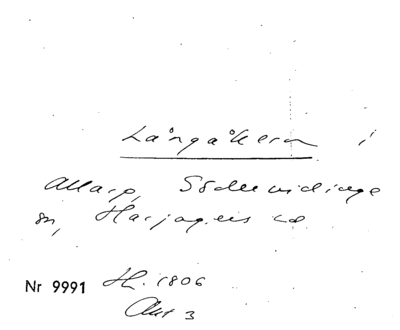 Långåkern i
Allarp, Södervidinge
sn, Harjagers hd
Nr 9991 Hl. 1806
Akt 3